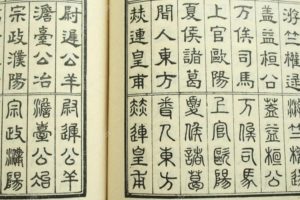 游竺權逯
游竺權逯
蓋益桓公
蓋益桓公
万俟司馬
万俟司馬
上官歐陽
上官歐陽
夏侯諸葛
夏侯諸葛
聞人東方
聞人東方
赫連皇甫
赫連皇甫
尉遲公羊
尉遲公羊
澹臺公冶
澹臺公冶
宗政濮陽
宗政濮陽